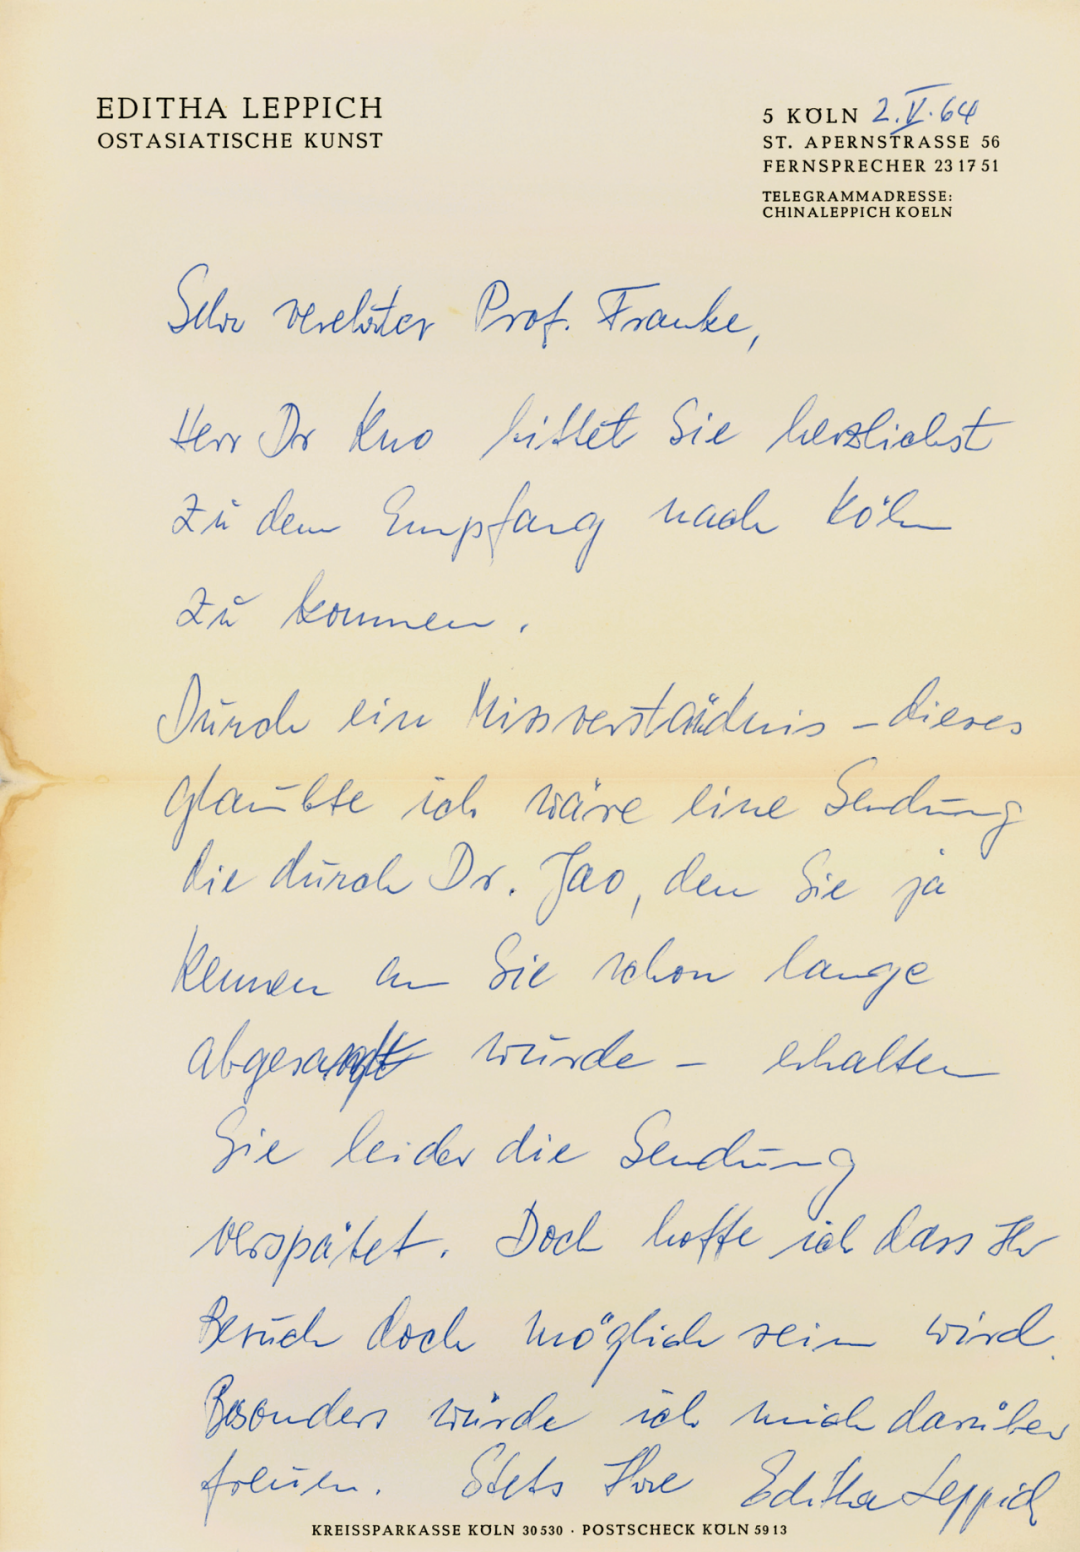 EDITHA LEPPICH
OSTASIATISCHE KUNST
5 KÖLN 2.V.64
ST. APERNSTRASSE 56
FERNSPRECHER 23 17 51
TELEGRAMMADRESSE:
CHINALEPPICH KOELN
Sehr verehrter Prof. Franke,
Herr Dr Kuo bittet Sie herzlichst
zu dem Empfang nach Köln
zu kommen.
Durch ein Missverständnis – dieses
glaubte ich wäre eine Sendung
die durch Dr. Jao, den Sie ja
kennen an Sie schon lange
abgesandt wurde – erhalten
Sie leider die Sendung
verspätet. Doch hoffe ich dass Ihr
Besuch doch möglich sein wird.
Besonders würde ich mich darüber
freuen. Stets Ihre Editha Leppich
KREISSPARKASSE KÖLN 30 530 · POSTSCHECK KÖLN 59 13